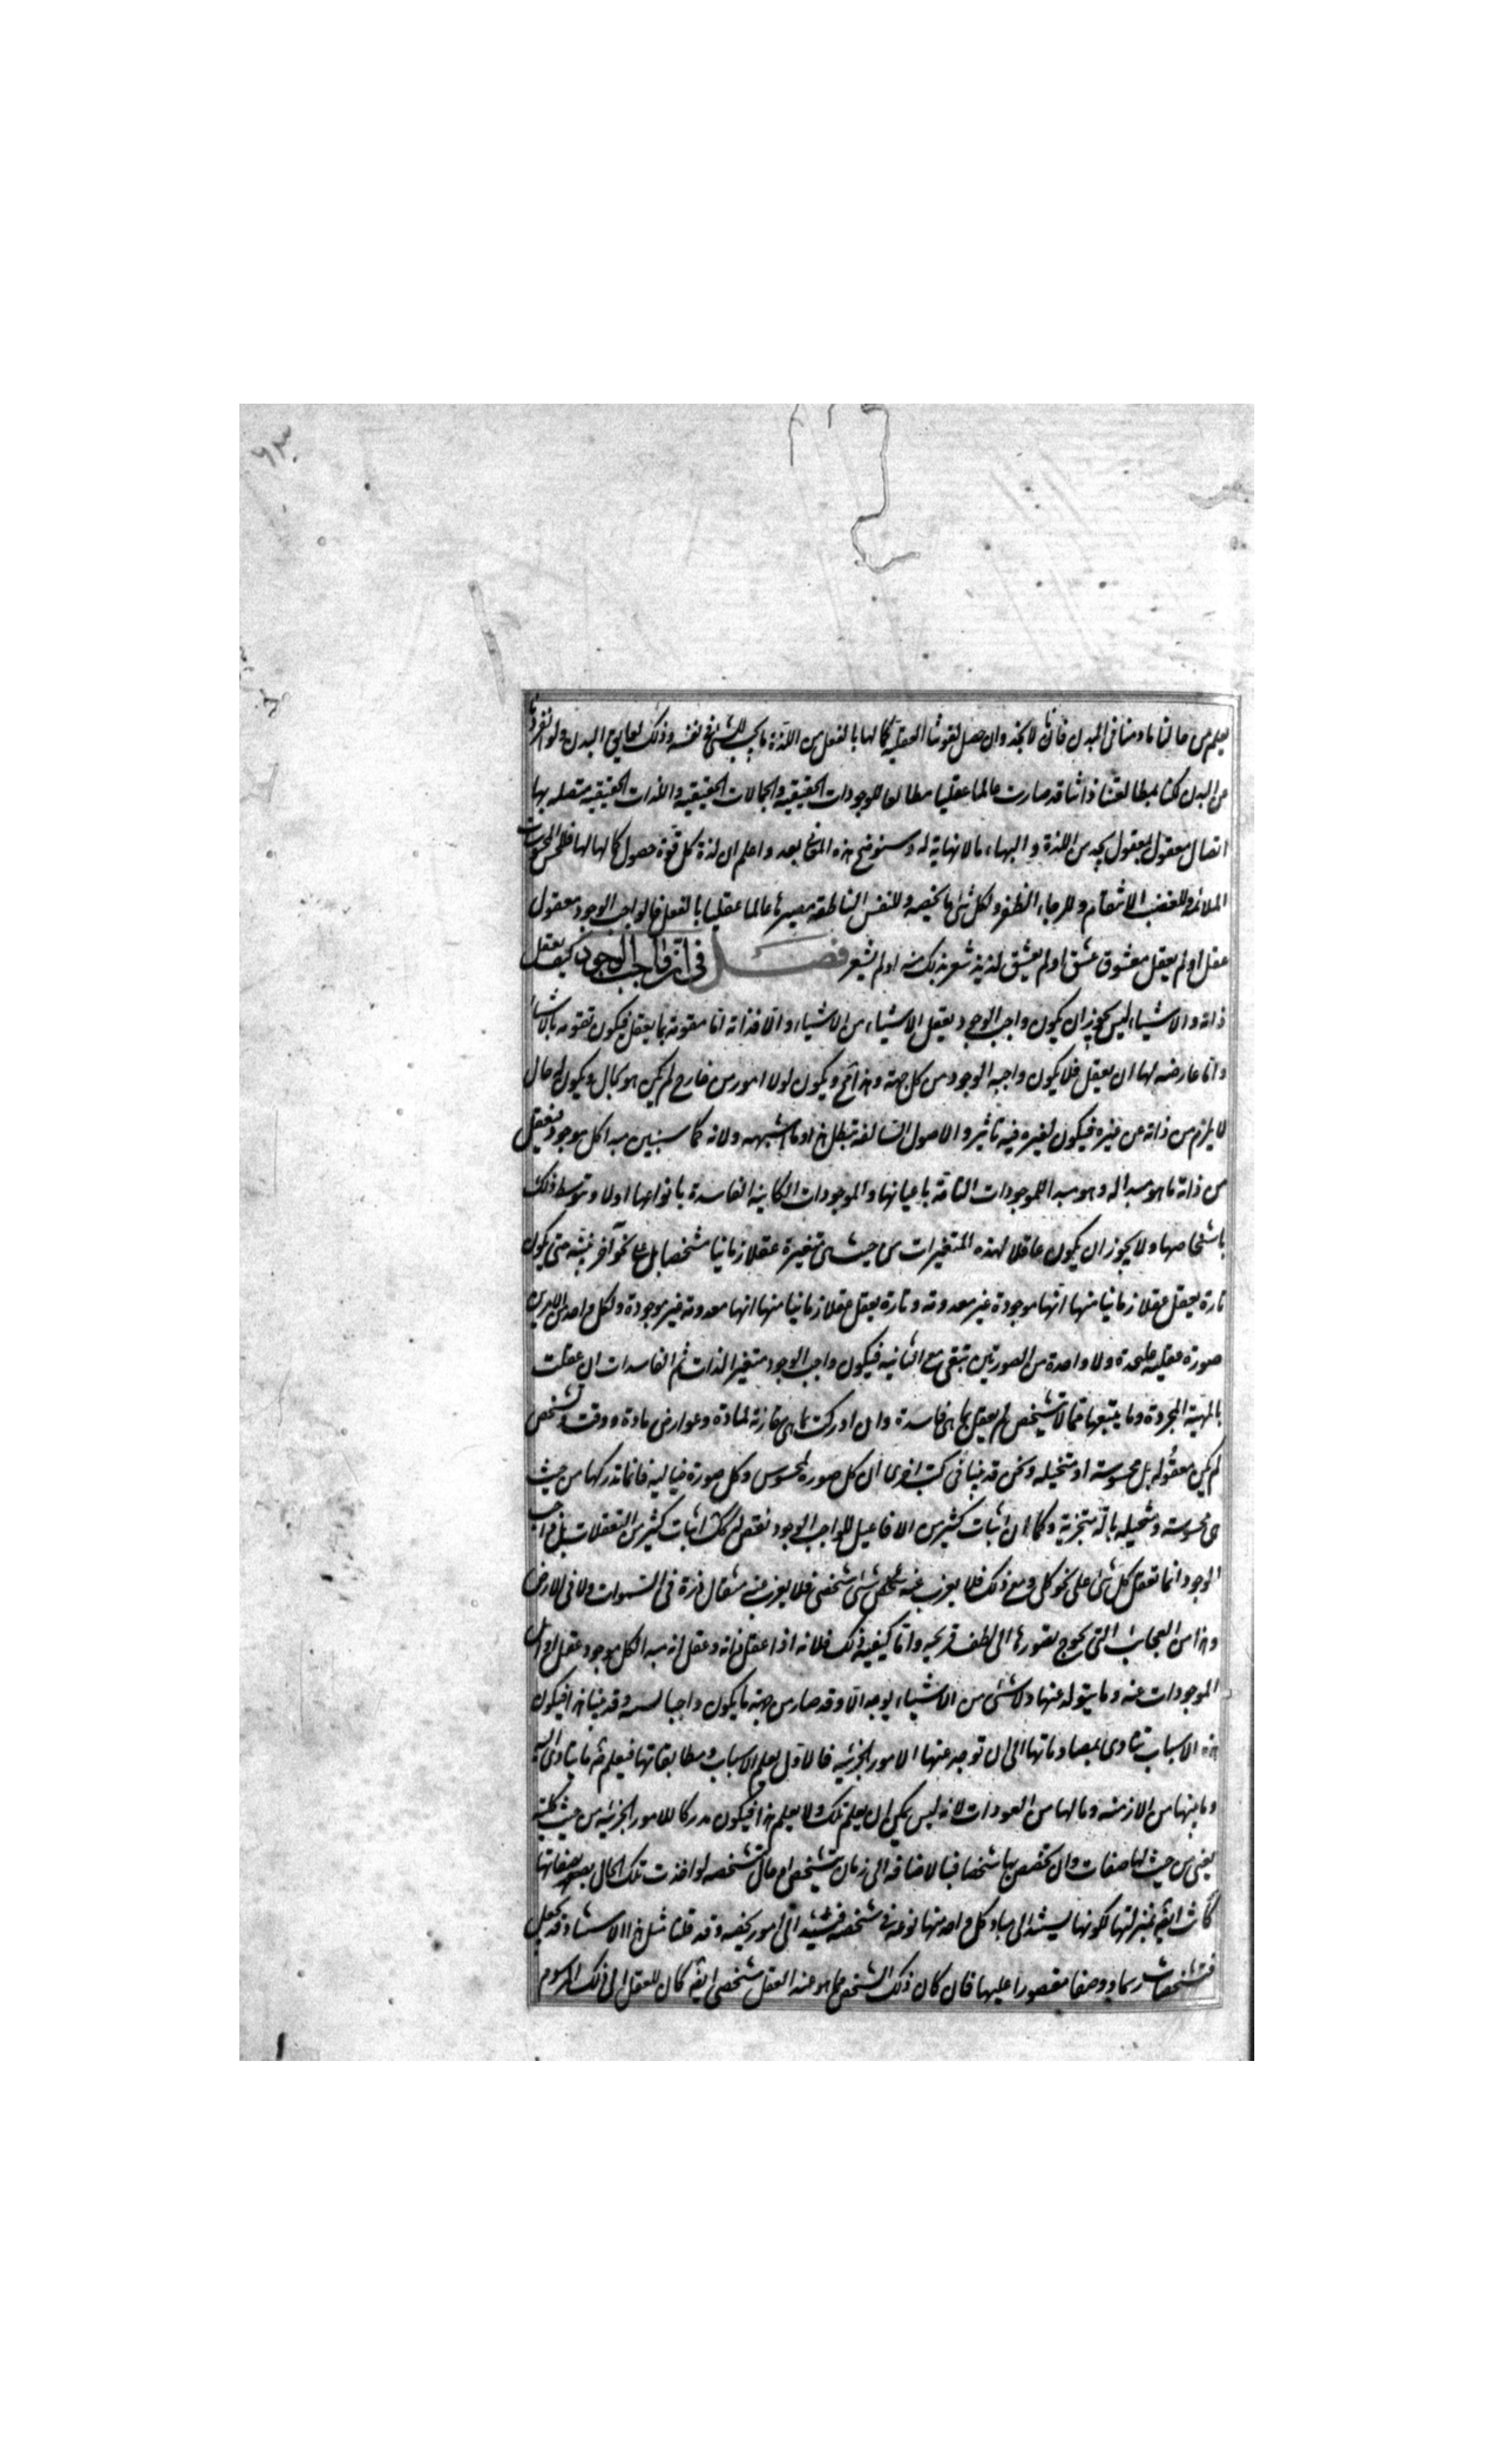 يعلم من حالنا مادمنا فى البدن فانا لا نجد وان حصل لقوتنا العقلية كمالها بالفعل من اللذة ما يجب للشئ فى نفسه وذلك لعايق البدن ولو انفردنا
عن البدن كنا بمطالعتنا ذاتنا قد صارت عالما عقليا مطالعا للموجودات الحقيقيه والجمالات الحقيقيه واللذات الحقيقيه متصله بها
اتصال معقول بمعقول يجد من اللذة و البهاء مالا نهاية له وسنوضح هذه المعانى بعد واعلم ان لذة كل قوة حصول كمالها لها فللحس المحسوسات
الملائمة وللغضب الانتقام وللرجاء الظفر ولكل شئ ما يخصه وللنفس الناطقه مصيرها عالما عقليا بالفعل فالواجب الوجود معقول
عقل او لم يعقل معشوق عشق او لم يعشق لذيذ شعر بذلك منه او لم يشعر فصل فى ان واجب الوجود كيف يعقل
ذاته والاشياء ليس يجوز ان يكون واجب الوجود يعقل الاشياء من الاشياء والا فذاته اما مقومة بما يعقل فيكون تقومه بالاشياء
واما عارضه لها ان يعقل فلا يكون واجبه الوجود من كل جهة وهذا مح ويكون لولا امور من خارج لم يكن هو بحال ويكون له حال
لا يلزم من ذاته عن غيره فيكون لغيره فيه تاثير والاصول السالفه تبطل هذا وما اشبهه ولانه كما سنبين مبدا كل موجود فيعقل
من ذاته ما هو مبدا له وهو مبدا للموجودات التامة باعيانها والموجودات الكاينه الفاسدة بانواعها اولا وبتوسط ذلك
باشخاصها ولا يجوز ان يكون عاقلا لهذه المتغيرات من حيث هى متغيرة عقلا زمانيا مشخصا بل على نحو آخر نبينه حتى يكون
تارة يعقل عقلا زمانيا منها انها موجودة غير معدومه وتارة يعقل عقلا زمانيا منها انها معدومة غير موجودة ولكل واحد من الامرين
صورة عقليه عليحدة ولا واحدة من الصورتين تبقى مع الثانيه فيكون واجب الوجود متغير الذات ثم الفاسدات ان عقلت
بالمهية المجردة وما يتبعها مما لا يتشخص لم يعقل بما هى فاسدة وان ادركت بما هى مقارنة لمادة وعوارض مادة ووقت وتشخص
لم يكن معقوله بل محسوسة او متخيله ونحن قد بينا فى كتب اخرى ان كل صورة لمحسوس وكل صورة خياليه فانما ندركها من حيث
هى محسوسة ومتخيله بآلة متجزية وكما ان اثبات كثير من الافاعيل للواجب الوجود نقص له كك اثبات كثير من التعقلات بل واجب
الوجود انما تعقل كل شئ على نحو كلى ومع ذلك فلا يعزب عنه شئ شخصى فلا يعزب عنه مثقال ذرة فى السموات ولا فى الارض
وهذا من العجايب التى يحوج تصورها الى لطف قريحه واما كيفية ذلك فلانه اذا عقل ذاته وعقل انه مبدا كل موجود عقل اوايل
الموجودات عنه وما يتولد عنها ولا شئ من الاشياء يوجد الا وقد صار من جهة ما يكون واجبا بسببه وقد بينا هذا فيكون
هذه الاسباب تتادى بمصادماتها الى ان توجد عنها الامور الجزئيه فالاول يعلم الاسباب ومطابقاتها فيعلم ضرورة ما يتادى اليه
وما بينها من الازمنه ومالها من العودات لانه ليس يمكن ان يعلم تلك ولا يعلم هذا فيكون مدركا للامور الجزئيه من حيث كلية
يعنى من حيث لها صفات وان تخصص بها شخصا فبالاضافه الى زمان متشخص او حال متشخصه لو اخذت تلك الحال بصفاتها
كانت ايضا بمنزلتها لكونها يستند الى مباد كل واحد منها نوعه فى شخصه فيستند الى امور شخصيه وقد قلنا مثل هذا الاستناد قد يجعل
للشخصيات رسما ووصفا مقصورا عليها فان كان ذلك الشخص مما هو عند العقل شخصى ايضا كان للعقل الى ذلك المرسوم